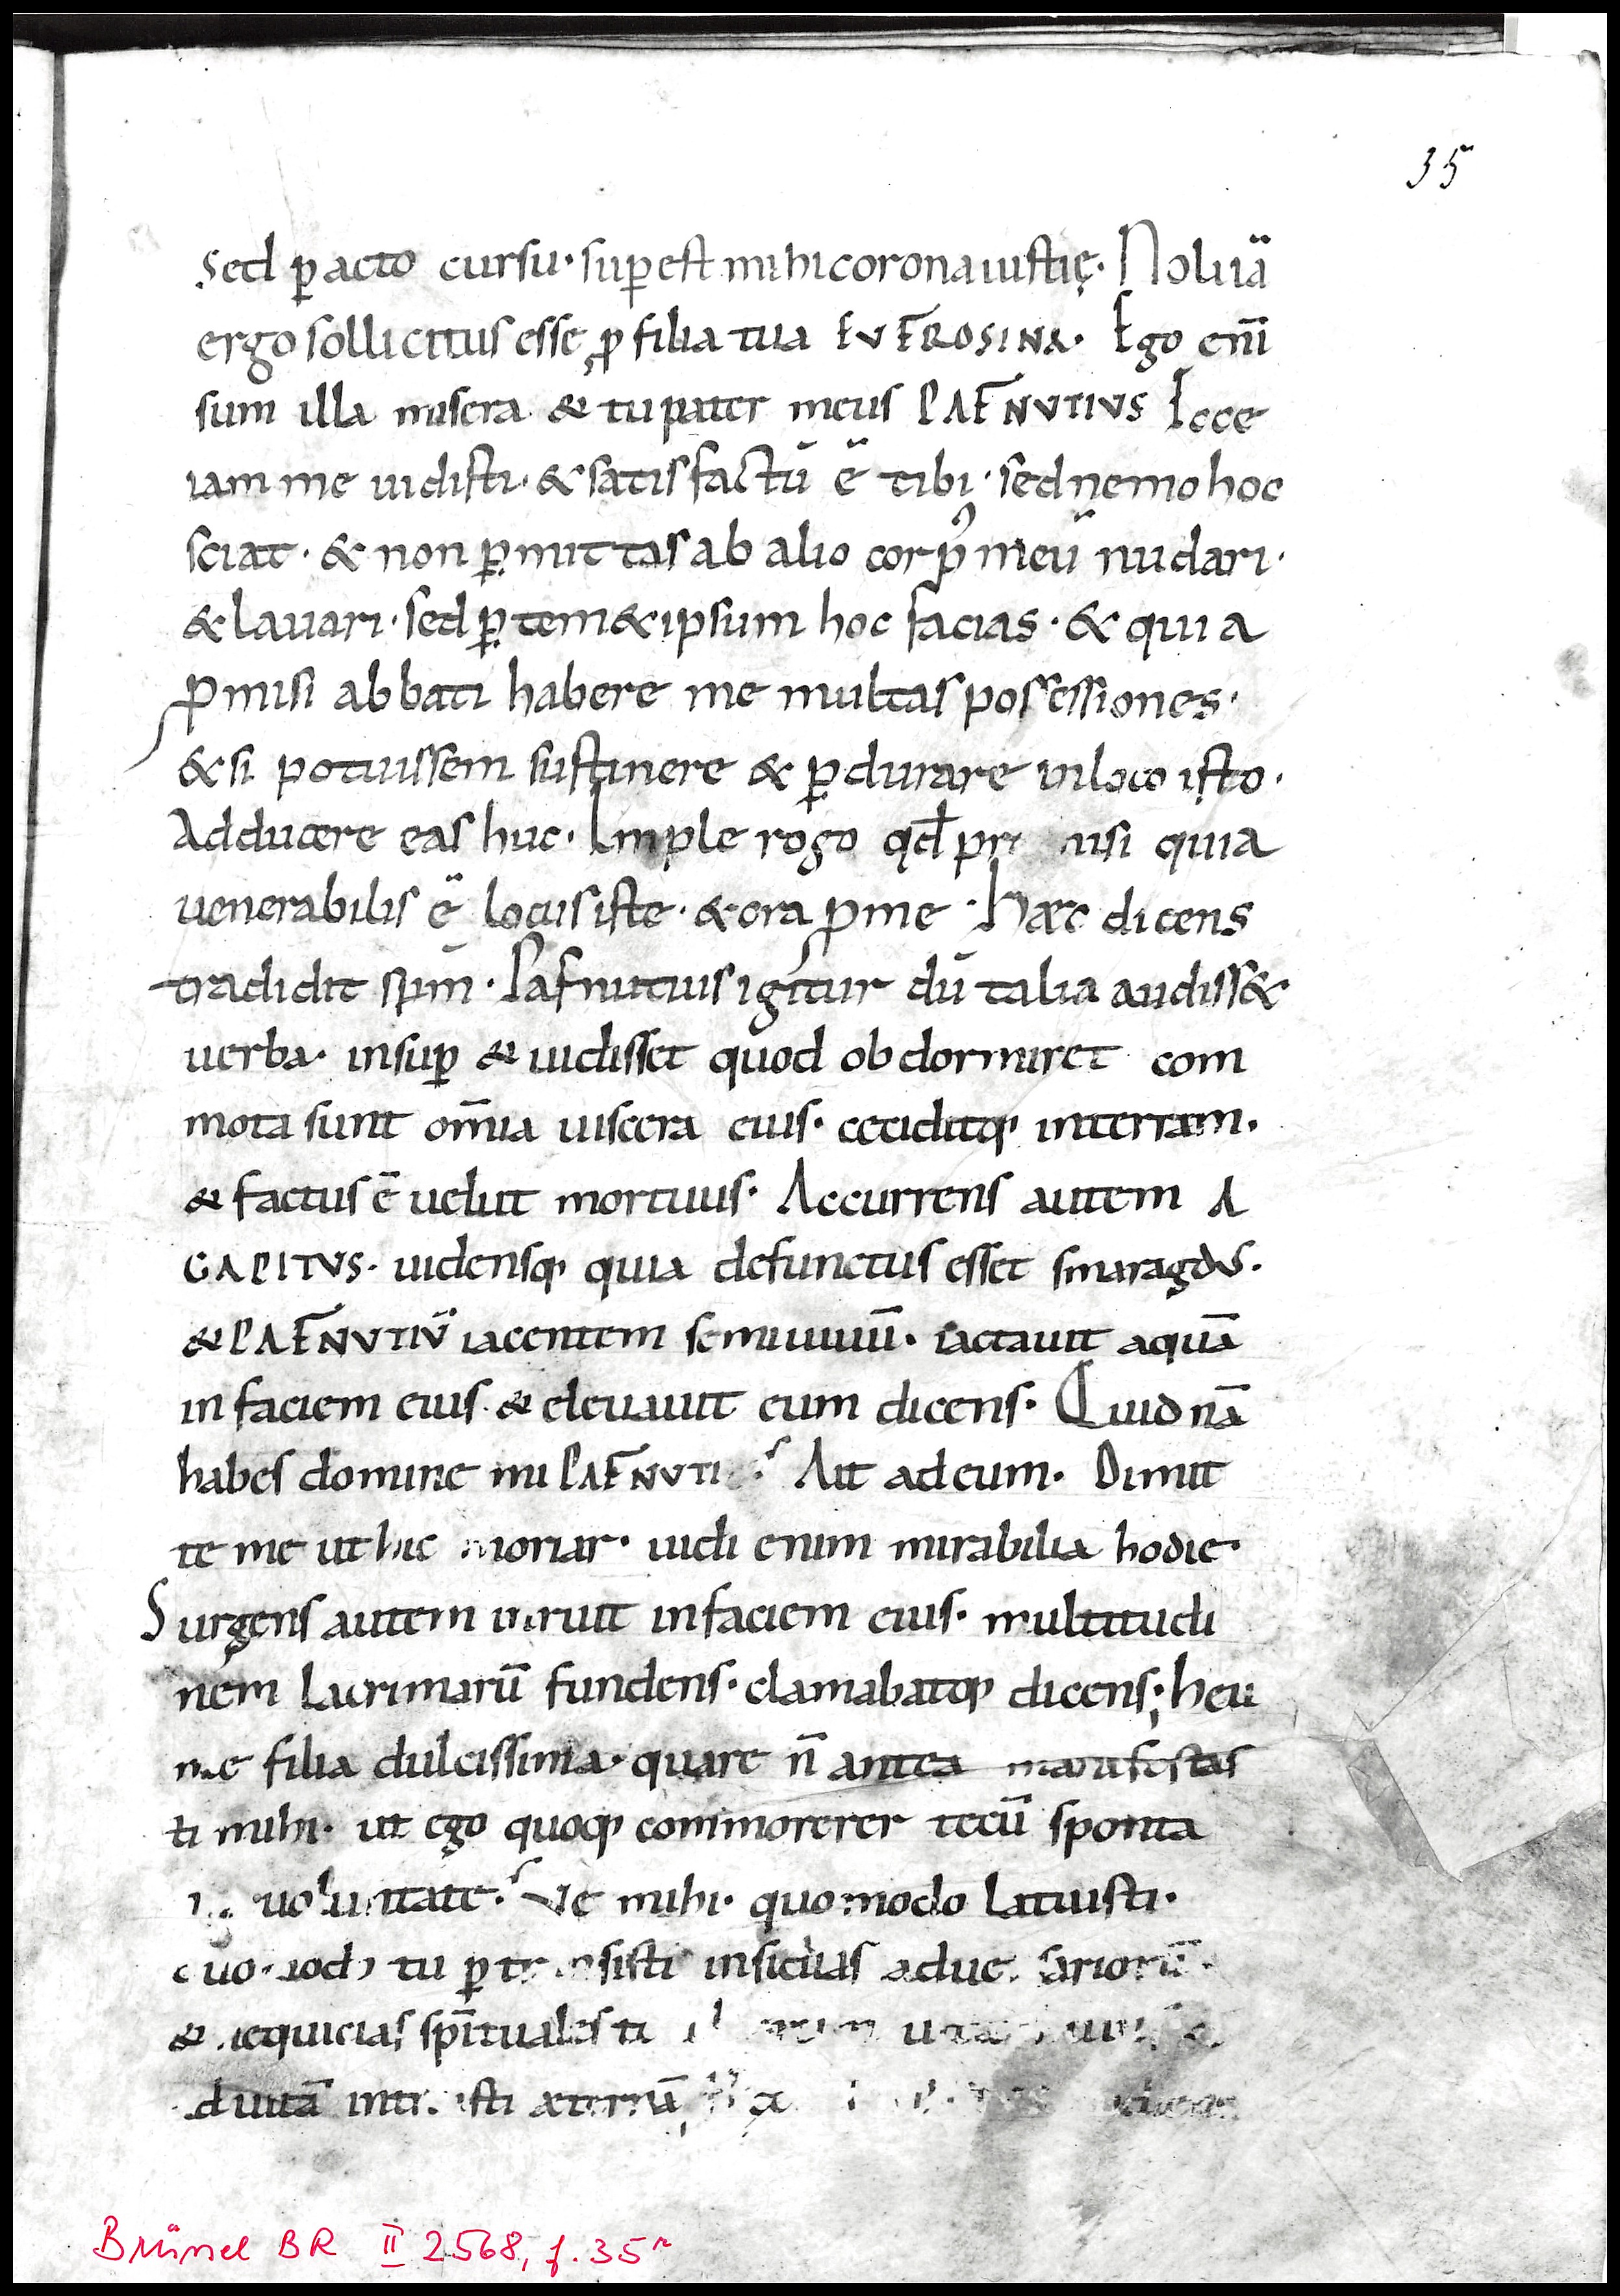 35
sed ꝑacto cursu· suꝑest mihi corona iustię· Noli iā
ergo sollicitus esse ꝓ filia tua EVFROSINA· Ego eni̅
sum illa misera & tu pater meus PAFNVTIVS Ecce
iam me uidisti· & satisfactū ē tibi· sed nemo hoc
sciat· & non ꝑmittas ab alio corp᾿ meū nudari·
& lauari· sed ꝑ tem&ipsum hoc facias· & quia
ꝓmisi abbati habere me multas possessiones·
& si potuissem sustinere & ꝑdurare in loco isto·
Adducere eas huc· Imple rogo qd̄ quia
uenerabilis ē locus iste· & ora ꝓ me· Haec dicens
tradidit sp̄m· Pafnutius igitur dū talia audiss&
uerba· insuꝑ & uidisset quod obdormiret com
mota sunt om̄ia uiscera eius· ceciditq· in terram·
& factus ē uelut mortuus· Accurrens autem A
GAPITVS· uidensq· quia defunctus esset smaragdus·
& PAFNVTIV̄ iacentem semiuiuū· iactauit aquā
in faciem eius & eleuauit eum dicens· Quid nā
habes domine mi PAFNVTI Ait ad eum· Dimit
te me ut hic moriar· uidi enim mirabilia hodie·
Surgens autem inruit in faciem eius· multitudi
nem lacrimarū fundens· clamabatq· dicens; heu
me filia dulcissima· quare n̄ antea manifestas
ti mihi· ut ego quoq· commorerer tecū sponta
uoluntate? Ve mihi· quomodo latuisti·
quomodo tu ꝑtransisti insidias aduersariorū·
& nequicias sp̄ituales
d uitā intrasti aeternā
Brüssel BR II 2568, f. 35r